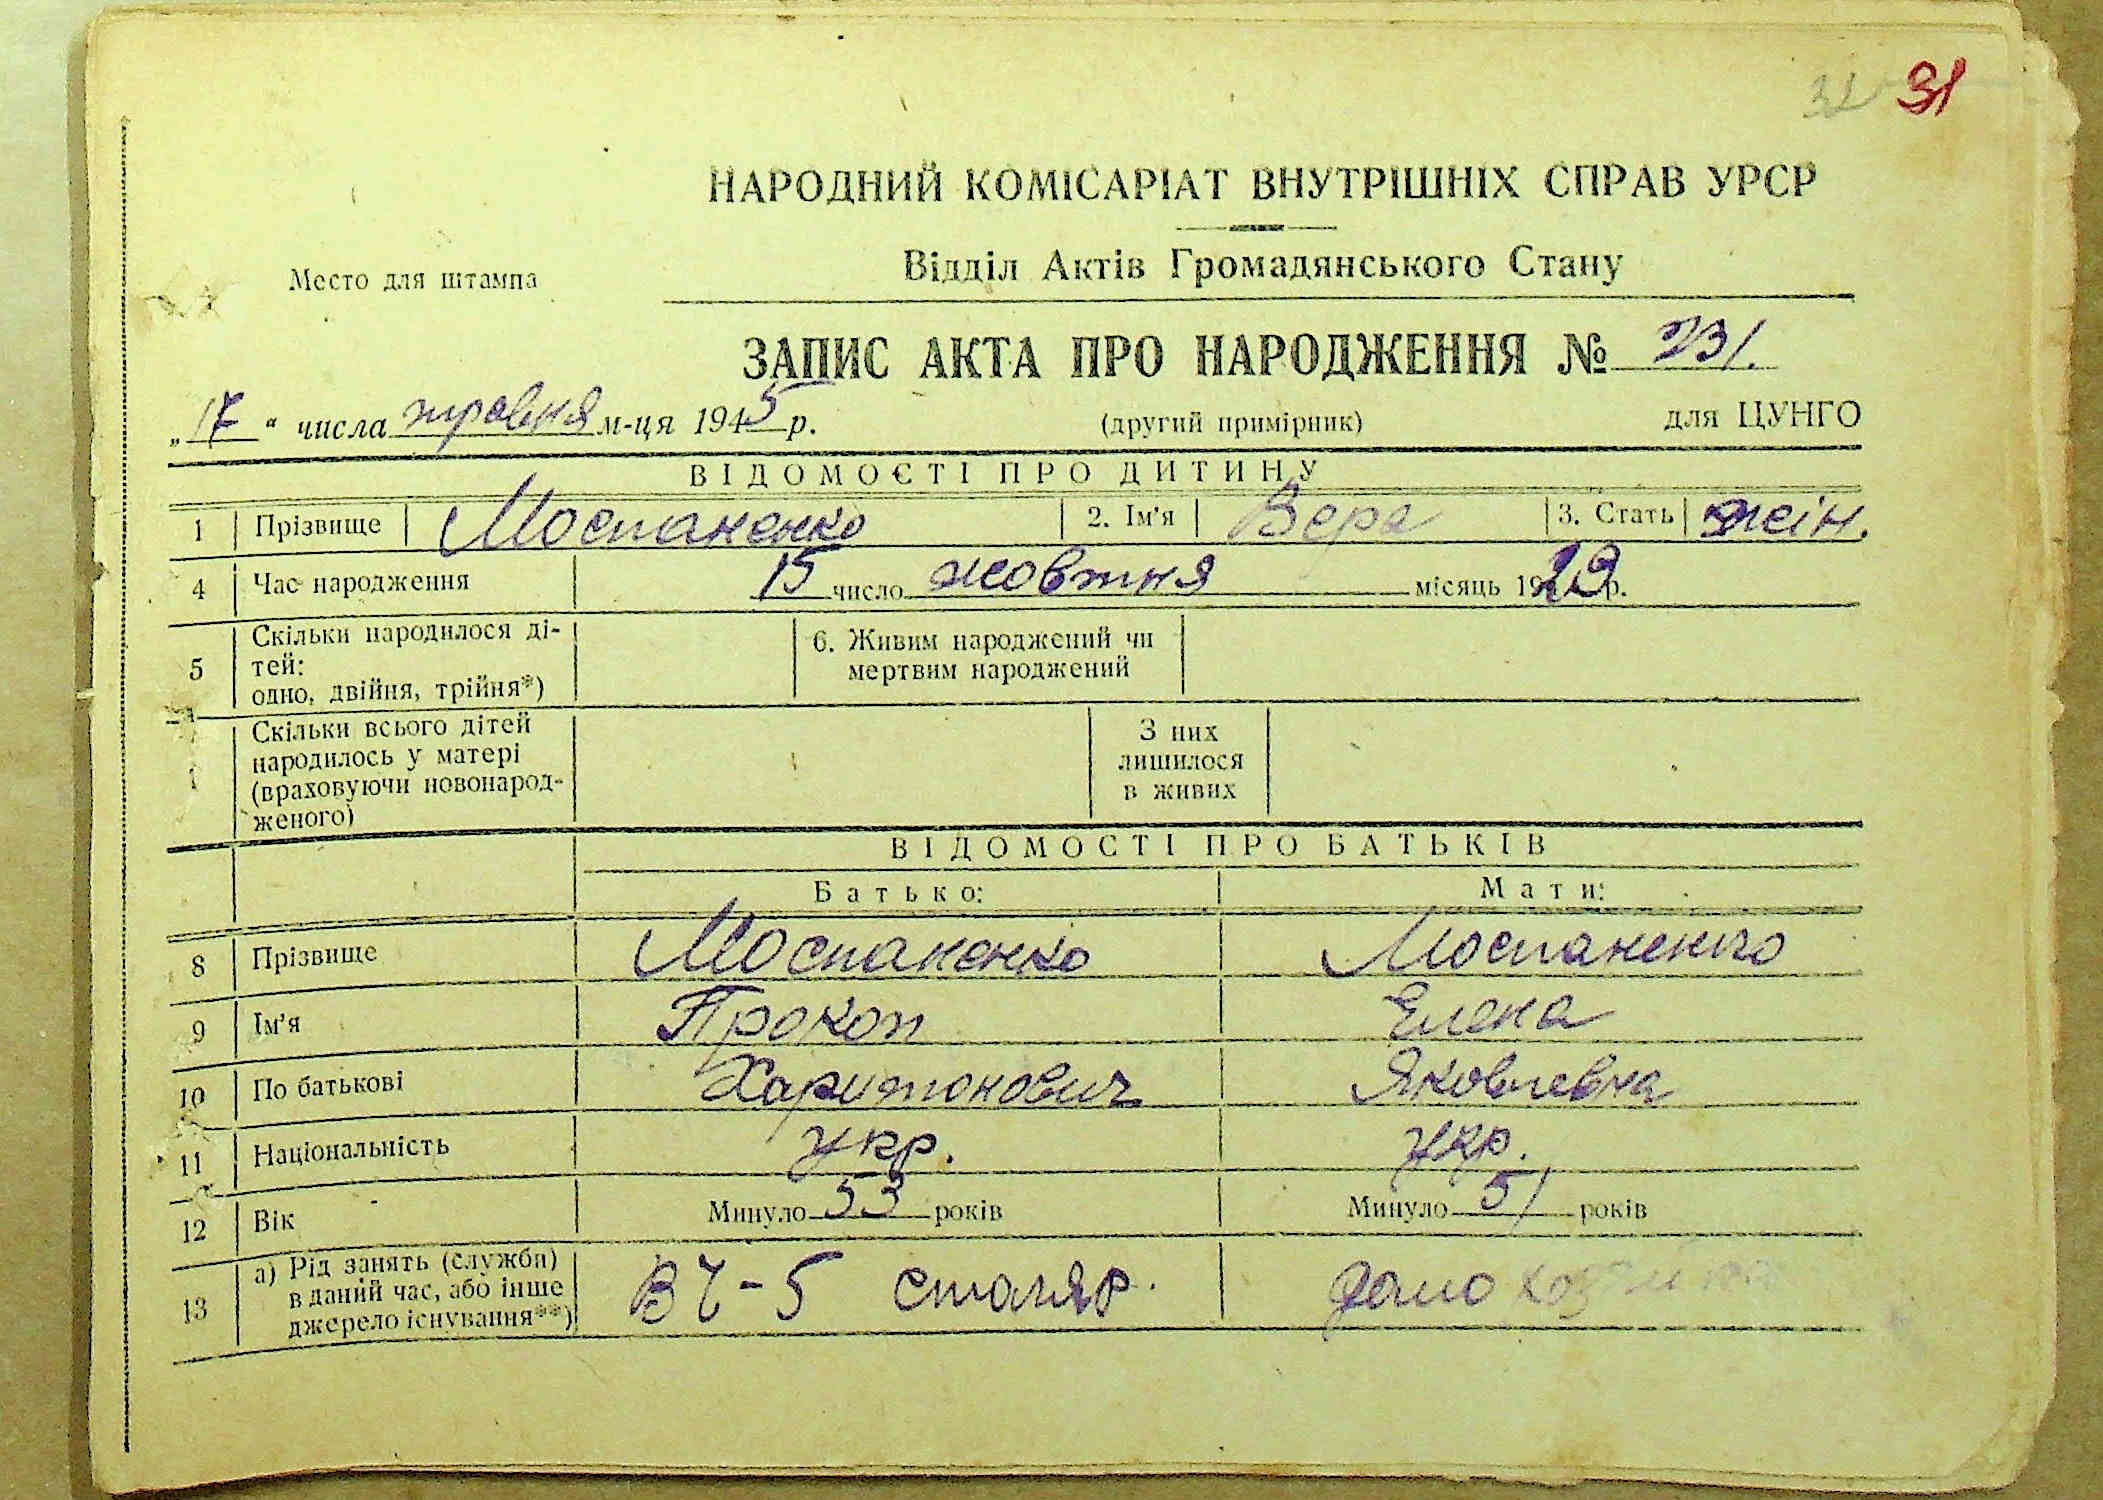 31 31
НАРОДНИЙ КОМІСАРІАТ ВНУТРІШНІХ СПРАВ УРСР
Место для штампа
Відділ Актів Громадянського Стану
ЗАПИС АКТА ПРО НАРОДЖЕННЯ № 231.
„17“ числа травня м-ця 1945 р. (другий примірник) для ЦУНГО
ВІДОМОЄТІ ПРО ДИТИНУ
1 Прізвище Моспаненко 2. Ім'я Вера 3. Стать жін.
4 Час народження 15 число жовтня місяць 1929 р.
5 Скільки народилося ді-
тей:
одно, двійня, трійня*)
6. Живим народжений чи
мертвим народжений
Скільки всього дітей
народилось у матері
(враховуючи новонарод-
женого)
З них
лишилося
в живих
ВІДОМОСТІ ПРО БАТЬКІВ
Батько: Мати:
8 Прізвище Моспаненко Моспаненко
9 Ім'я Прокоп Елена
10 По батькові Харитонович Яковлевна
11 Національність укр. укр.
12 Вік Минуло 53 років Минуло 51 років
13 а) Рід занять (служби)
в даний час, або інше
джерело існування**)
ВЧ-5 столяр. домохозяйка